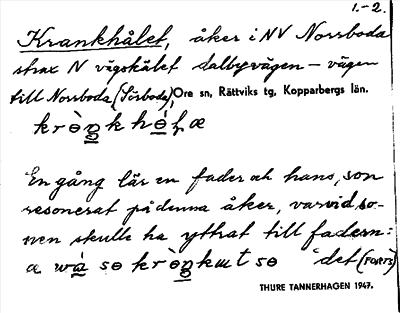 1.-2.
Krankhålet, åker i NV Norrboda
strax N vägskälet dalbyvägen – vägen
till Norrboda (Sörboda), Ore sn, Rättviks tg, Kopparbergs län.
En gång lär en fader och hans, son
resonerat på denna åker, varvid so-
nen skulle ha yttrat till fadern:
"det (FORTS)
THURE TANNERHAGEN 1947.